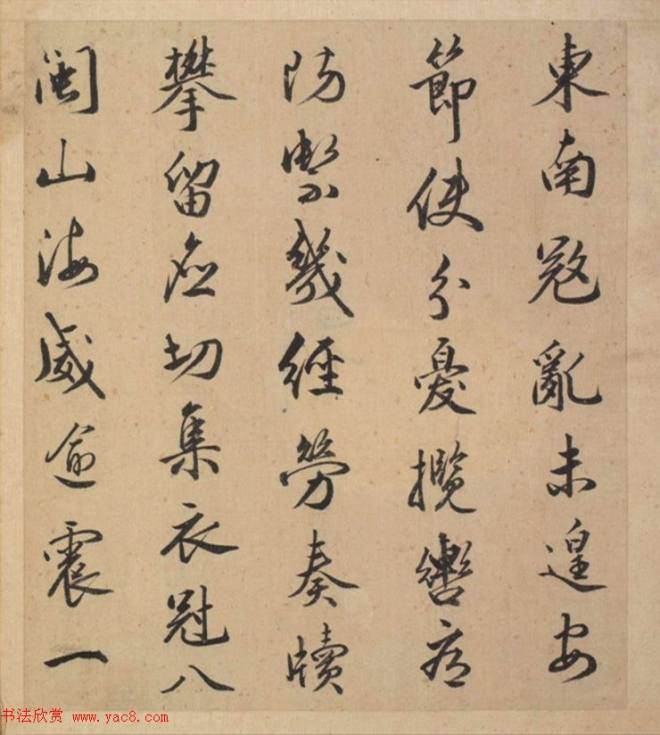 東南寇亂未遑安
節使分憂攬轡看
防禦幾經勞奏牘
攀留應切集衣冠八
閩山海威逾震一
书法欣赏 www.yac8.com